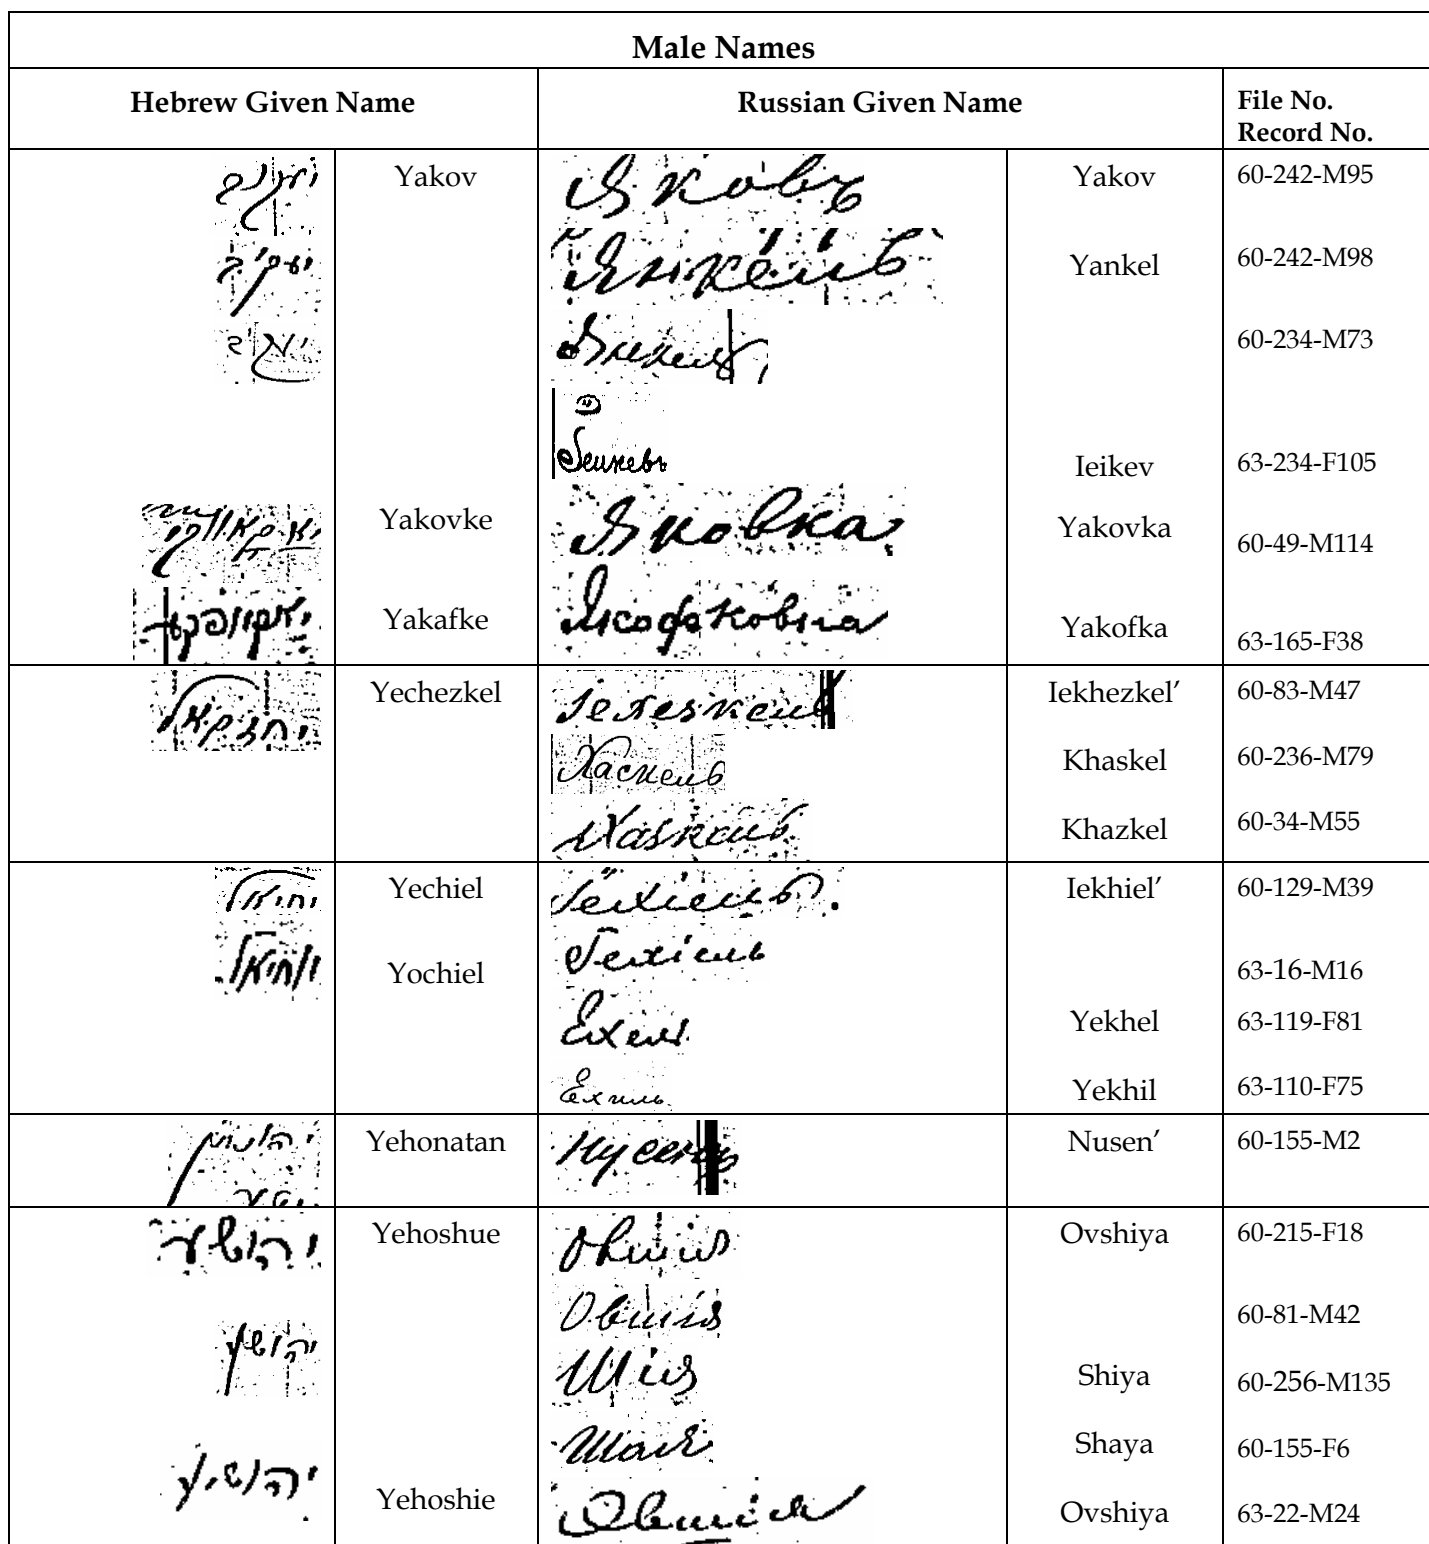 Male Names
Hebrew Given Name Russian Given Name File No. Record No.
יעקב Yakov Яковъ Yakov 60-242-M95
יעקב Янкель Yankel 60-242-M98
יעקב Янкель 60-234-M73
Iейкевъ Ieikev 63-234-F105
Yakovke Яковка Yakovka 60-49-M114
Yakafke Yakofka 63-165-F38
יחזקאל Yechezkel Iехезкель Iekhezkel’ 60-83-M47
Хаскель Khaskel 60-236-M79
Хазкель Khazkel 60-34-M55
יחיאל Yechiel Iехiель Iekhiel’ 60-129-M39
יוחיאל Yochiel Iехiель 63-16-M16
Ехель Yekhel 63-119-F81
Ехиль Yekhil 63-110-F75
יהונתן Yehonatan Нусенъ Nusen’ 60-155-M2
יהושע Yehoshue Овшiя Ovshiya 60-215-F18
Овшiя 60-81-M42
יהושע Шiя Shiya 60-256-M135
Шая Shaya 60-155-F6
יהושיע Yehoshie Овшiя Ovshiya 63-22-M24